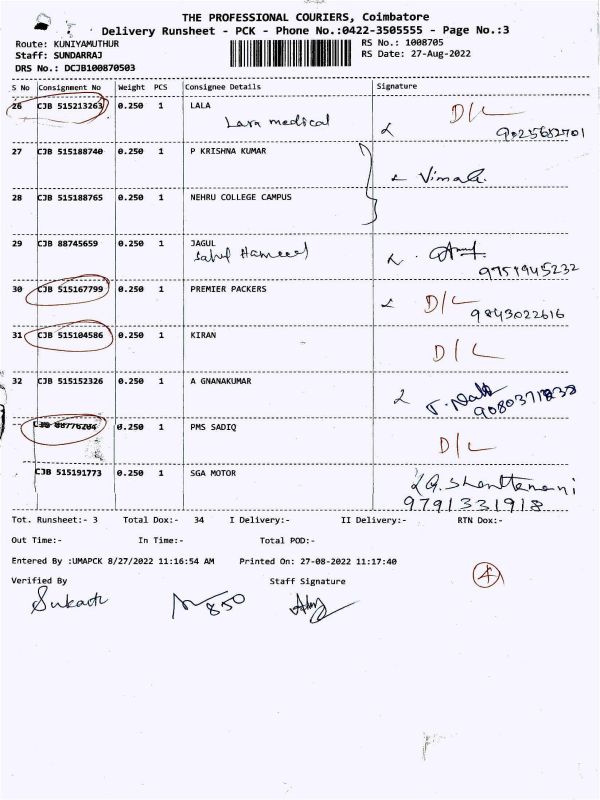 THE PROFESSIONAL COURIERS, Coimbatore
Delivery Runsheet - PCK - Phone No.:0422-3505555 - Page No.:3
Route: KUNIYAMUTHUR
RS No.: 1008705
Staff: SUNDARRAJ
RS Date: 27-Aug-2022
DRS No.: DCJB100870503
S No Consignment No Weight PCS Consignee Details Signature
26 CJB 515213263 0.250 1 LALA D/L
Lara medical 9025682701
27 CJB 515188740 0.250 1 P KRISHNA KUMAR
Vimal
28 CJB 515188765 0.250 1 NEHRU COLLEGE CAMPUS
29 CJB 88745659 0.250 1 JAGUL
Sahul Hameed 9751945232
30 CJB 515167799 0.250 1 PREMIER PACKERS D/L
9843022616
31 CJB 515104586 0.250 1 KIRAN D/L
32 CJB 515152326 0.250 1 A GNANAKUMAR
CJB 0.250 1 PMS SADIQ D/L
CJB 515191773 0.250 1 SGA MOTOR
9791331918
Tot. Runsheet:- 3 Total Dox:- 34 I Delivery:- II Delivery:- RTN Dox:-
Out Time:- In Time:- Total POD:-
Entered By :UMAPCK 8/27/2022 11:16:54 AM Printed On: 27-08-2022 11:17:40
4
Verified By Staff Signature
850